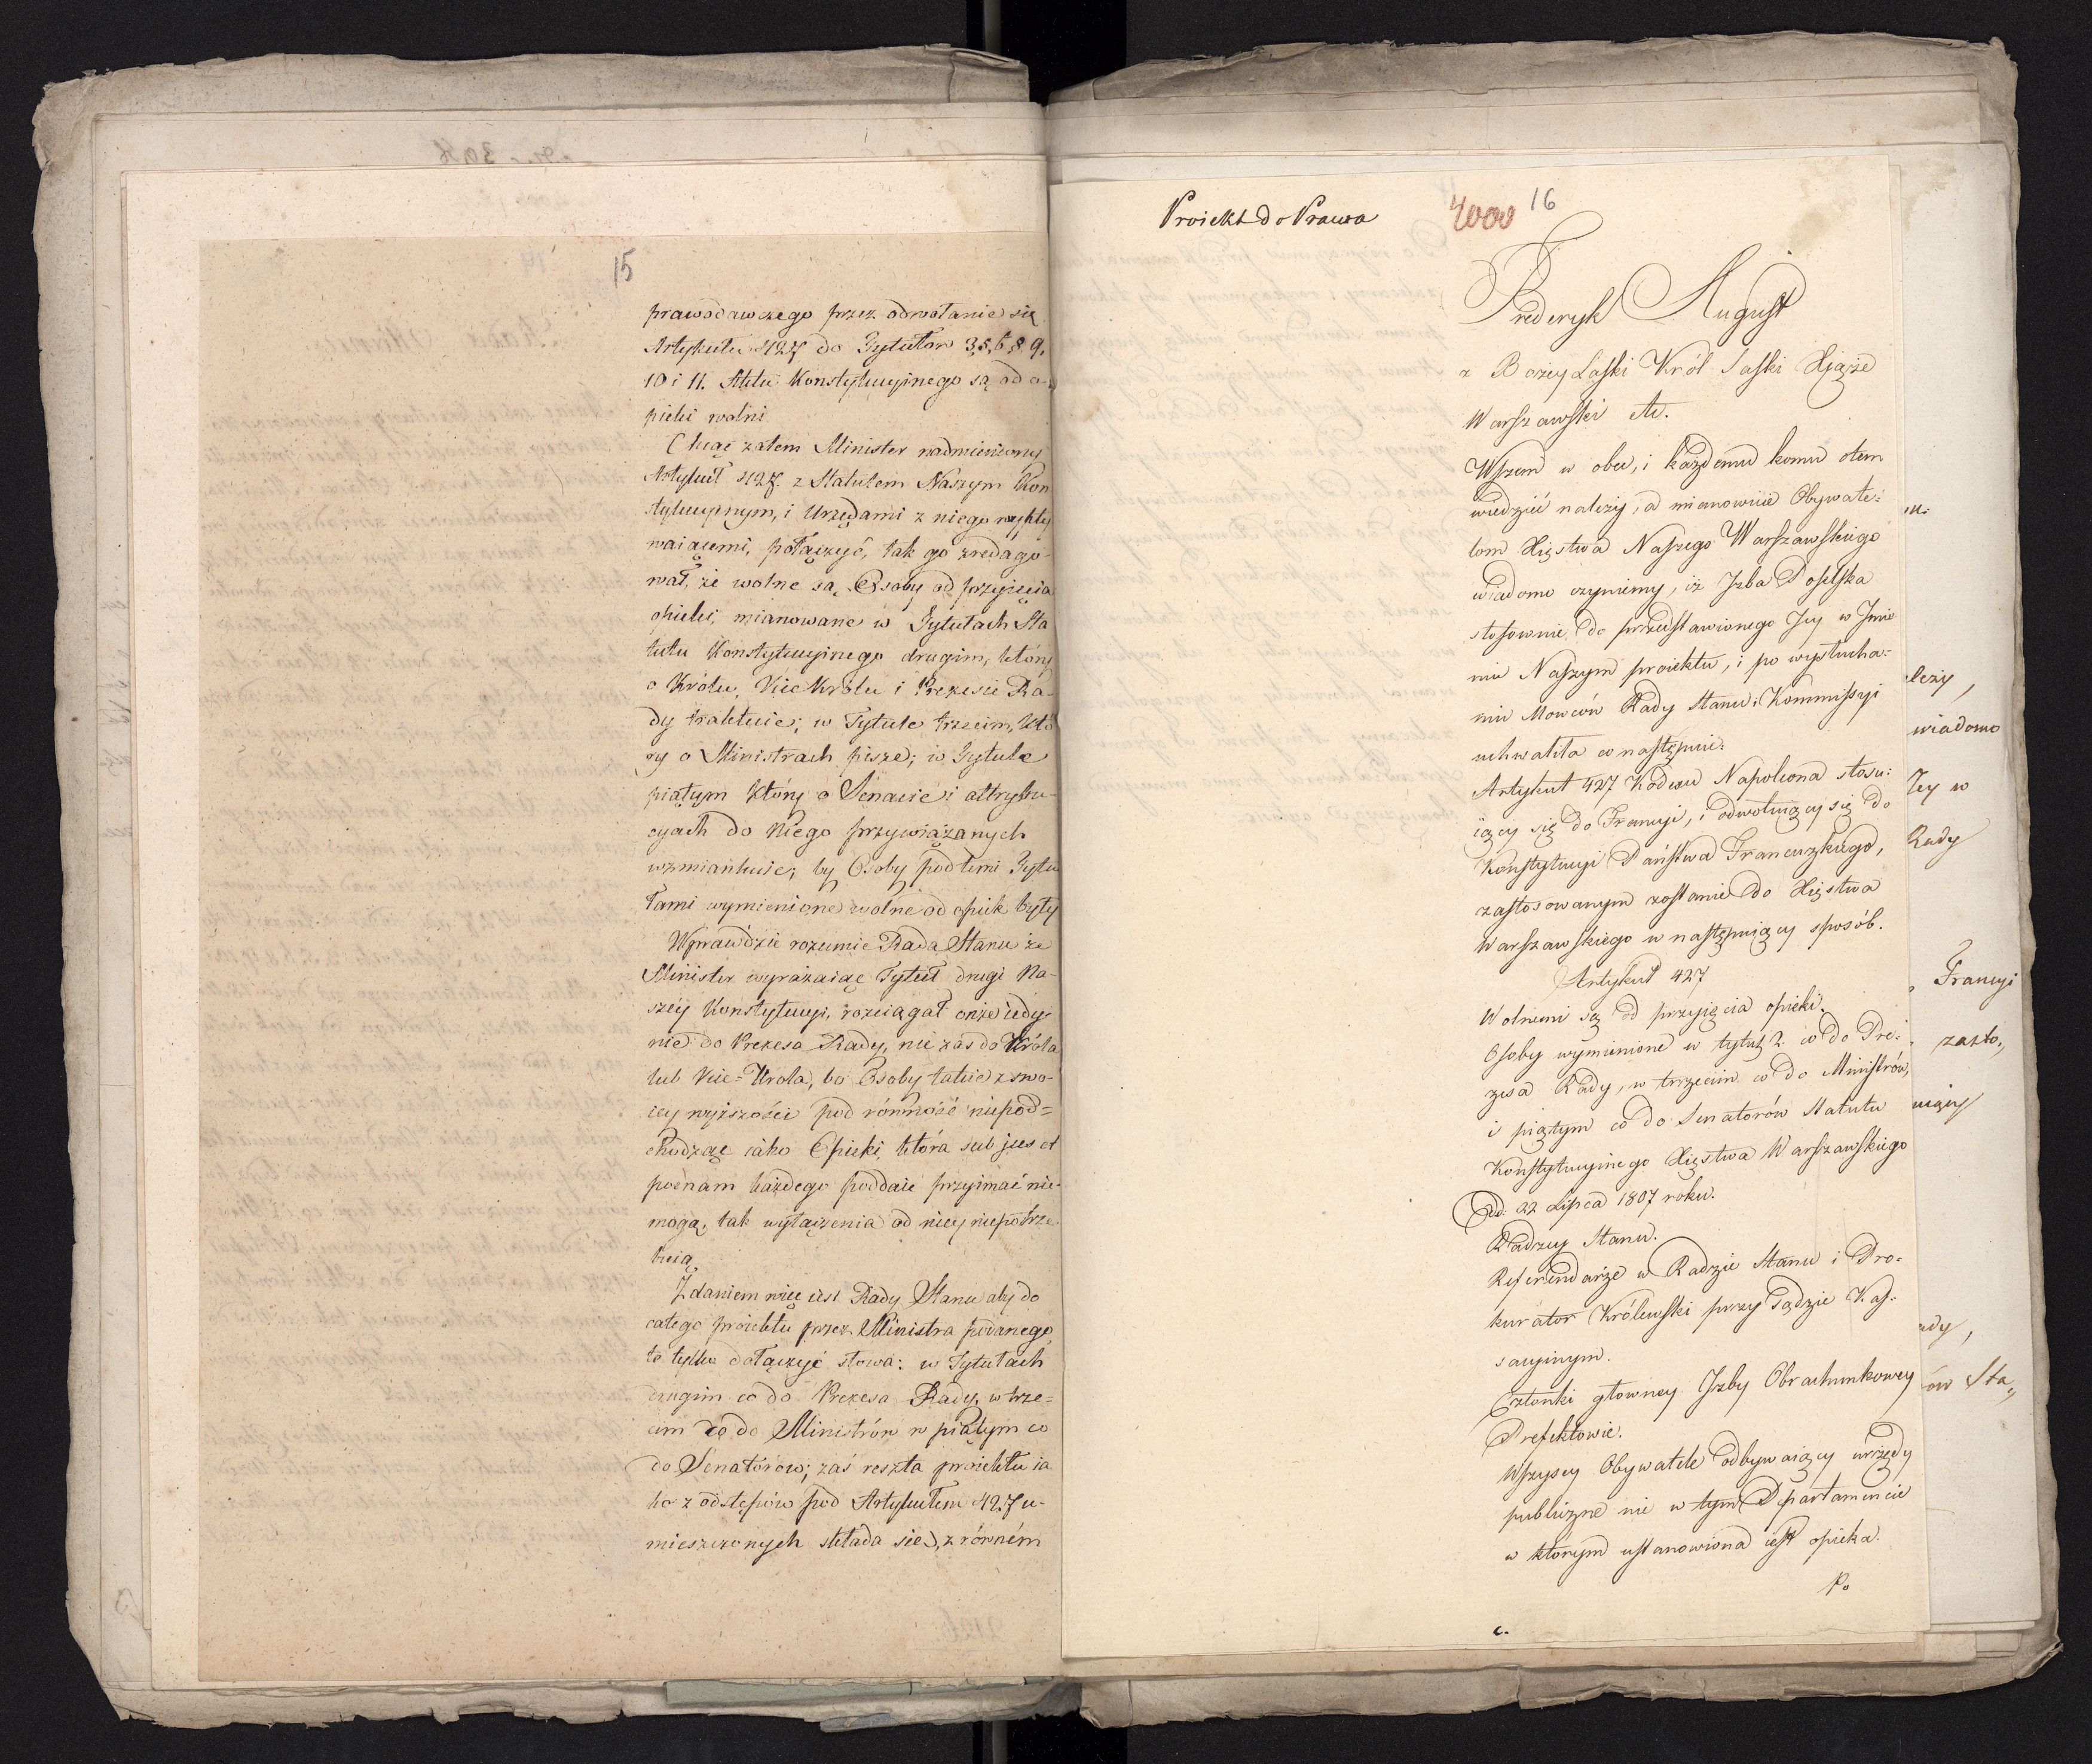 15
prawodawczego przez odwołanie się
Artykułu 427 do Tytułów 3, 5, 6, 8. 9,
10 i 11. Aktu Konstytucyinego są od o-
pieki wolni
Chcąc zatem Minister nadmieniony
Artykuł 427. z Statutem Naszym Kon
stytucyinym, i Urzędami z niego wypły
waiącemi, połączyć, tak go zredago-
wał, że wolne są Osoby od przyięcia
opieki, mianowane w Tytułach Sta
tutu Konstytucyinego drugim, który
o Królu, Vice Królu i Prezesie Ra-
dy traktuie; w Tytule trzecim, któ
ry o Ministrach pisze; w Tytule
piątym który o Senacie i attrybu-
cyach do niego przywiązanych
wzmiankuie; by Osoby pod temi Tytu
łami wymienione wolne od opiek były
Wprawdzie rozumie Rada Stanu że
Minister wyrażaiąc Tytuł drugi Na-
széy Konstytucyi, rozciągał onże iedy-
nie do Prezesa Rady, nie zaś do Króla
lub Vice=Krola, bo Osoby takie z swo-
iey wyższości pod równość niepod=
chodząc iako Opieki, która sub jus et
poenam każdego poddaie przyimać nie-
mogą, tak wyłączenia od niey niepotrze-
buią
Zdaniem więc iest Rady Stanu aby do
całego proiektu przez Ministra podanego,
te tylko dołączyć słowa: w Tytułach
drugim co do Prezesa Rady, w trze=
cim co do Ministrów w piątym co
do Senatórow; zaś reszta proiektu ia
ko z odstępów pod Artykułem 427 u-
mieszczonych składa sie, z równém
Proiekt do Prawa
4000 16
Frederyk August
z Bożey Łaski Król Saski Xiąże
Warszawski etc.
Wszem w obec, i każdemu komu otem
wiedzieć należy, a mianowicie Obywate=
lom Xięstwa Naszego Warszawskiego
wiadomo czyniemy, iż Izba Poselska
stosownie do przedstawionego Jey w Jmie
niu Naszym proiektu, i po wysłucha=
niu Mowców Rady Stanu i Kommissyi
uchwaliła co następuie:
Artykuł 427 Kodexu Napoleona stosu=
iący się do Francyi, i odwołuiący się do
Konstytucyi Państwa Francuzkiego,
zastosowanym zostanie do Xięstwa
Warszawskiego w następuiący sposób.
Artykuł 427
Wolnemi są od przyięcia opieki.
Osoby wymienione w tytuł 2. co do Pre=
zesa Rady, w trzecim co do Ministrów,
i piątym co do Senatorów Statutu
Konstytucyinego Xięstwa Warszawskiego
Dd. 22 Lipca 1807 roku.
Radzcy Stanu.
Referendarże w Radzie Stanu i Pro=
kurator Królewski przy Sądzie Kas=
sacyinym.
Członki głowney Izby Obrachunkowey
Prefektowie.
Wszyscy Obywatele odbywaiący urzędy
publiczne nie w tym Departamencie
w którym ustanowiona iest opieka.
Po
c.
leży,
wiadomo
Jey w
Rady
Francyi
zasto„
uiący
ady,
ów Sta„